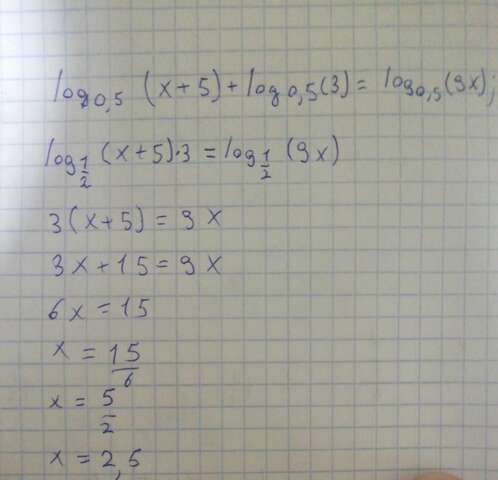 log₀,₅ (x+5) + log₀,₅(3) = log₀,₅(9x);
log_{1/2} (x+5)·3 = log_{1/2} (9x)
3(x+5) = 9x
3x+15 = 9x
6x = 15
x = 15/6
x = 5/2
x = 2,5